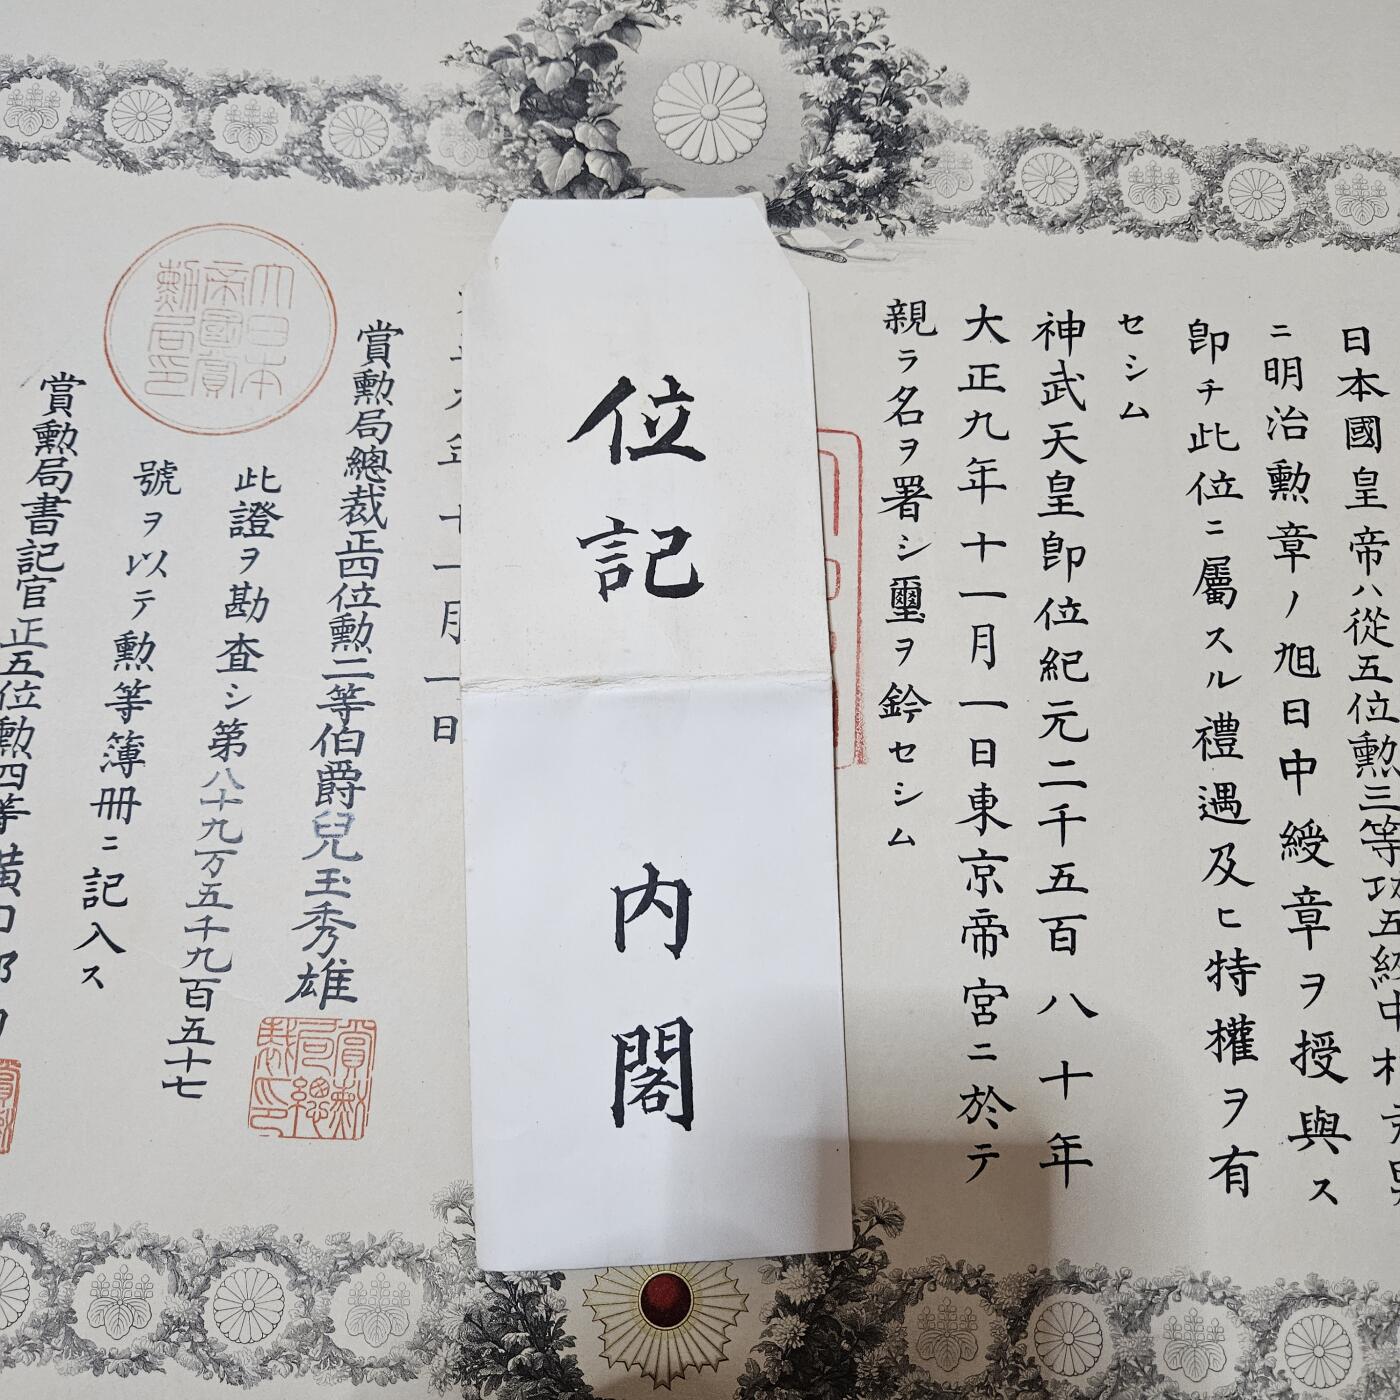 日本國皇帝ハ從五位勲三等功五級中村
ニ明治勲章ノ旭日中綬章ヲ授與ス
卽チ此位ニ屬スル禮遇及ヒ特權ヲ有
セシム
神武天皇卽位紀元二千五百八十年
大正九年十一月一日東京帝宮ニ於テ
親ラ名ヲ署シ璽ヲ鈐セシム
位記
内閣
九年十一月一日
賞勲局總裁正四位勲二等伯爵兒玉秀雄
賞勲局總裁印
此證ヲ勘査シ第八十九万五千九百五十七
號ヲ以テ勲等簿冊ニ記入ス
大日本帝國賞勲局印
賞勲局書記官正五位勲四等横田郷